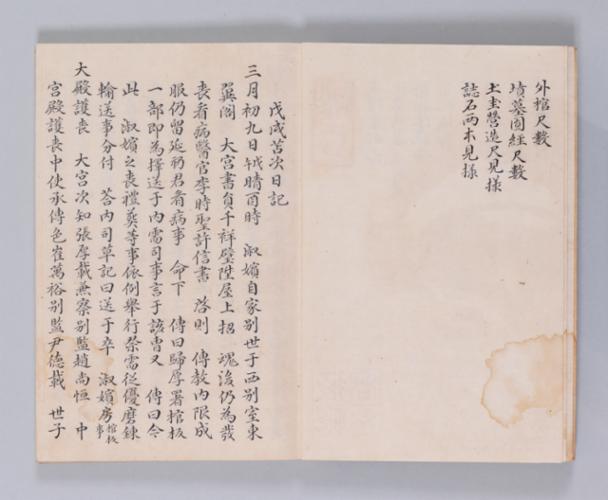 外棺尺數
墳墓圖經尺數
土圭營造尺見樣
誌石兩本見樣
戊戌苫次日記
三月初九日戊戌晴酉時 淑嬪自家別世于西別室東
翼閣 大宮書員千祥璧陞屋上招 魂後仍為發
喪看病醫官李時聖許信書 啓則 傳敎內限成
服仍留延礽君看病事 命下 傳曰歸厚署棺板
一部卽為擇送于內需司事言于該曹又 傳曰今
此 淑嬪之喪禮葬等事依例舉行祭需從優磨鍊
輸送事分付 答內司草記曰送于卒 淑嬪房棺板事
大殿護喪 大宮次知張厚載兼察別監趙尚恒 中
宮殿護喪中使承傳色崔萬裕別監尹德載 世子